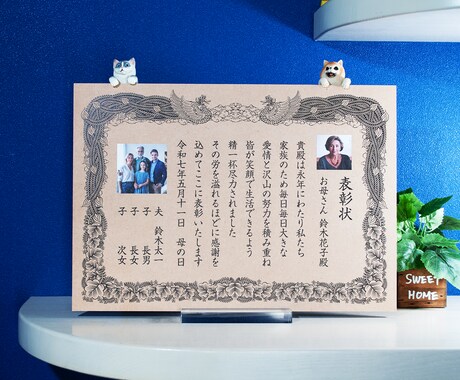 表彰状
お母さん 鈴木花子殿
貴殿は永年にわたり私たち
家族のため毎日毎日大きな
愛情と沢山の努力を積み重ね
皆が笑顔で生活できるよう
精一杯尽力されました
その労を溢れるほどに感謝を
込めてここに表彰いたします
令和七年五月十一日 母の日
夫 鈴木太一
子 長男
子 長女
子 次女
SWEET
HOME